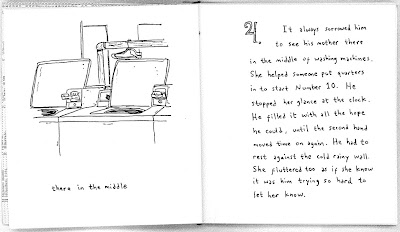 there in the middle
21.
It always sorrowed him
to see his mother there
in the middle of washing machines.
She helped someone put quarters
in to start Number 10. He
stopped her glance at the clock.
He filled it with all the hope
he could, until the second hand
moved time on again. He had to
rest against the cold rainy wall.
She fluttered too as if she knew
it was him trying so hard to
let her know.